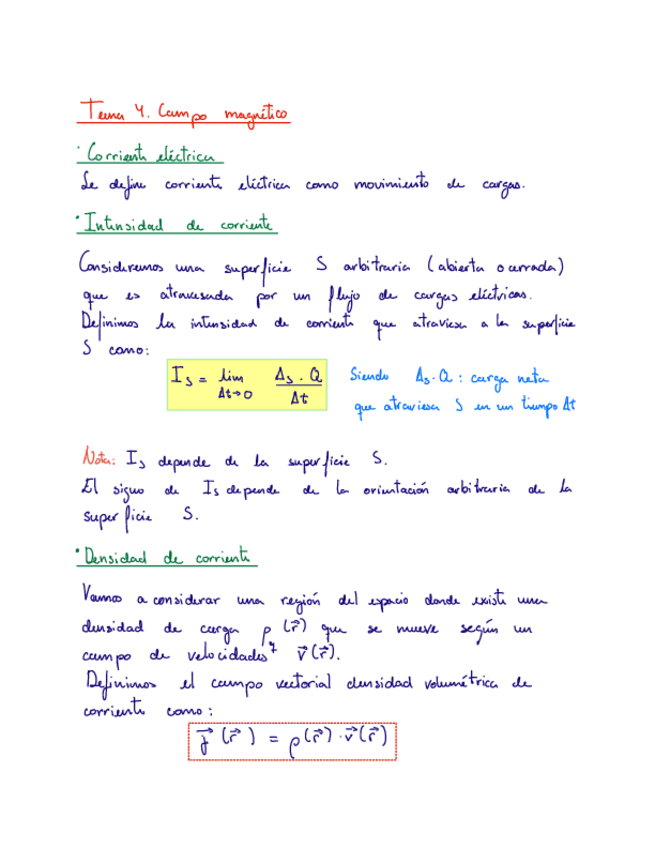 Tema 4. Campo magnético
· Corriente eléctrica
Se define corriente eléctrica como movimiento de cargas.
· Intensidad de corriente
Consideremos una superficie S arbitraria (abierta o cerrada)
que es atravesada por un flujo de cargas eléctricas.
Definimos la intensidad de corriente que atraviesa a la superficie
S como:
I_S = lim Δt→0 Δ_S · Q / Δt
Siendo Δ_S · Q : carga neta
que atraviesa S en un tiempo Δt
Nota: I_S depende de la superficie S.
El signo de I_S depende de la orientación arbitraria de la
superficie S.
· Densidad de corriente
Vamos a considerar una región del espacio donde existe una
densidad de carga ρ(r⃗) que se mueve según un
campo de velocidades v⃗(r⃗).
Definimos el campo vectorial densidad volumétrica de
corriente como:
j⃗(r⃗) = ρ(r⃗) · v⃗(r⃗)